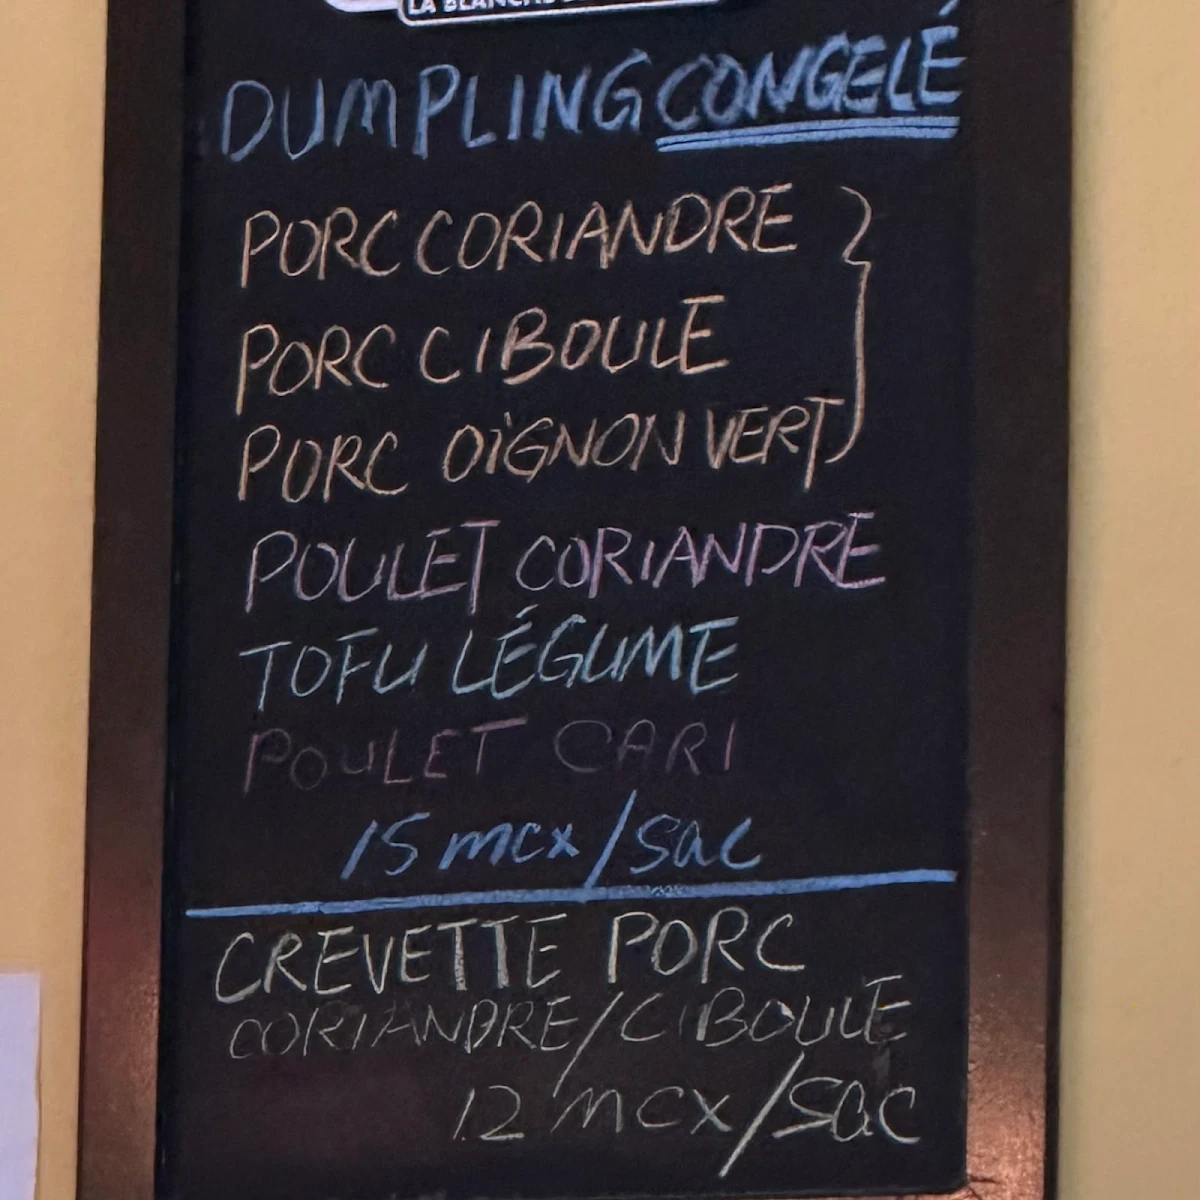 LA BLANCHE
DUMPLING CONGELÉ
PORC CORIANDRE
PORC CIBOULE
PORC OIGNON VERT
POULET CORIANDRE
TOFU LÉGUME
POULET CARI
15 mcx/sac
CREVETTE PORC
CORIANDRE/CIBOULE
12 mcx/sac